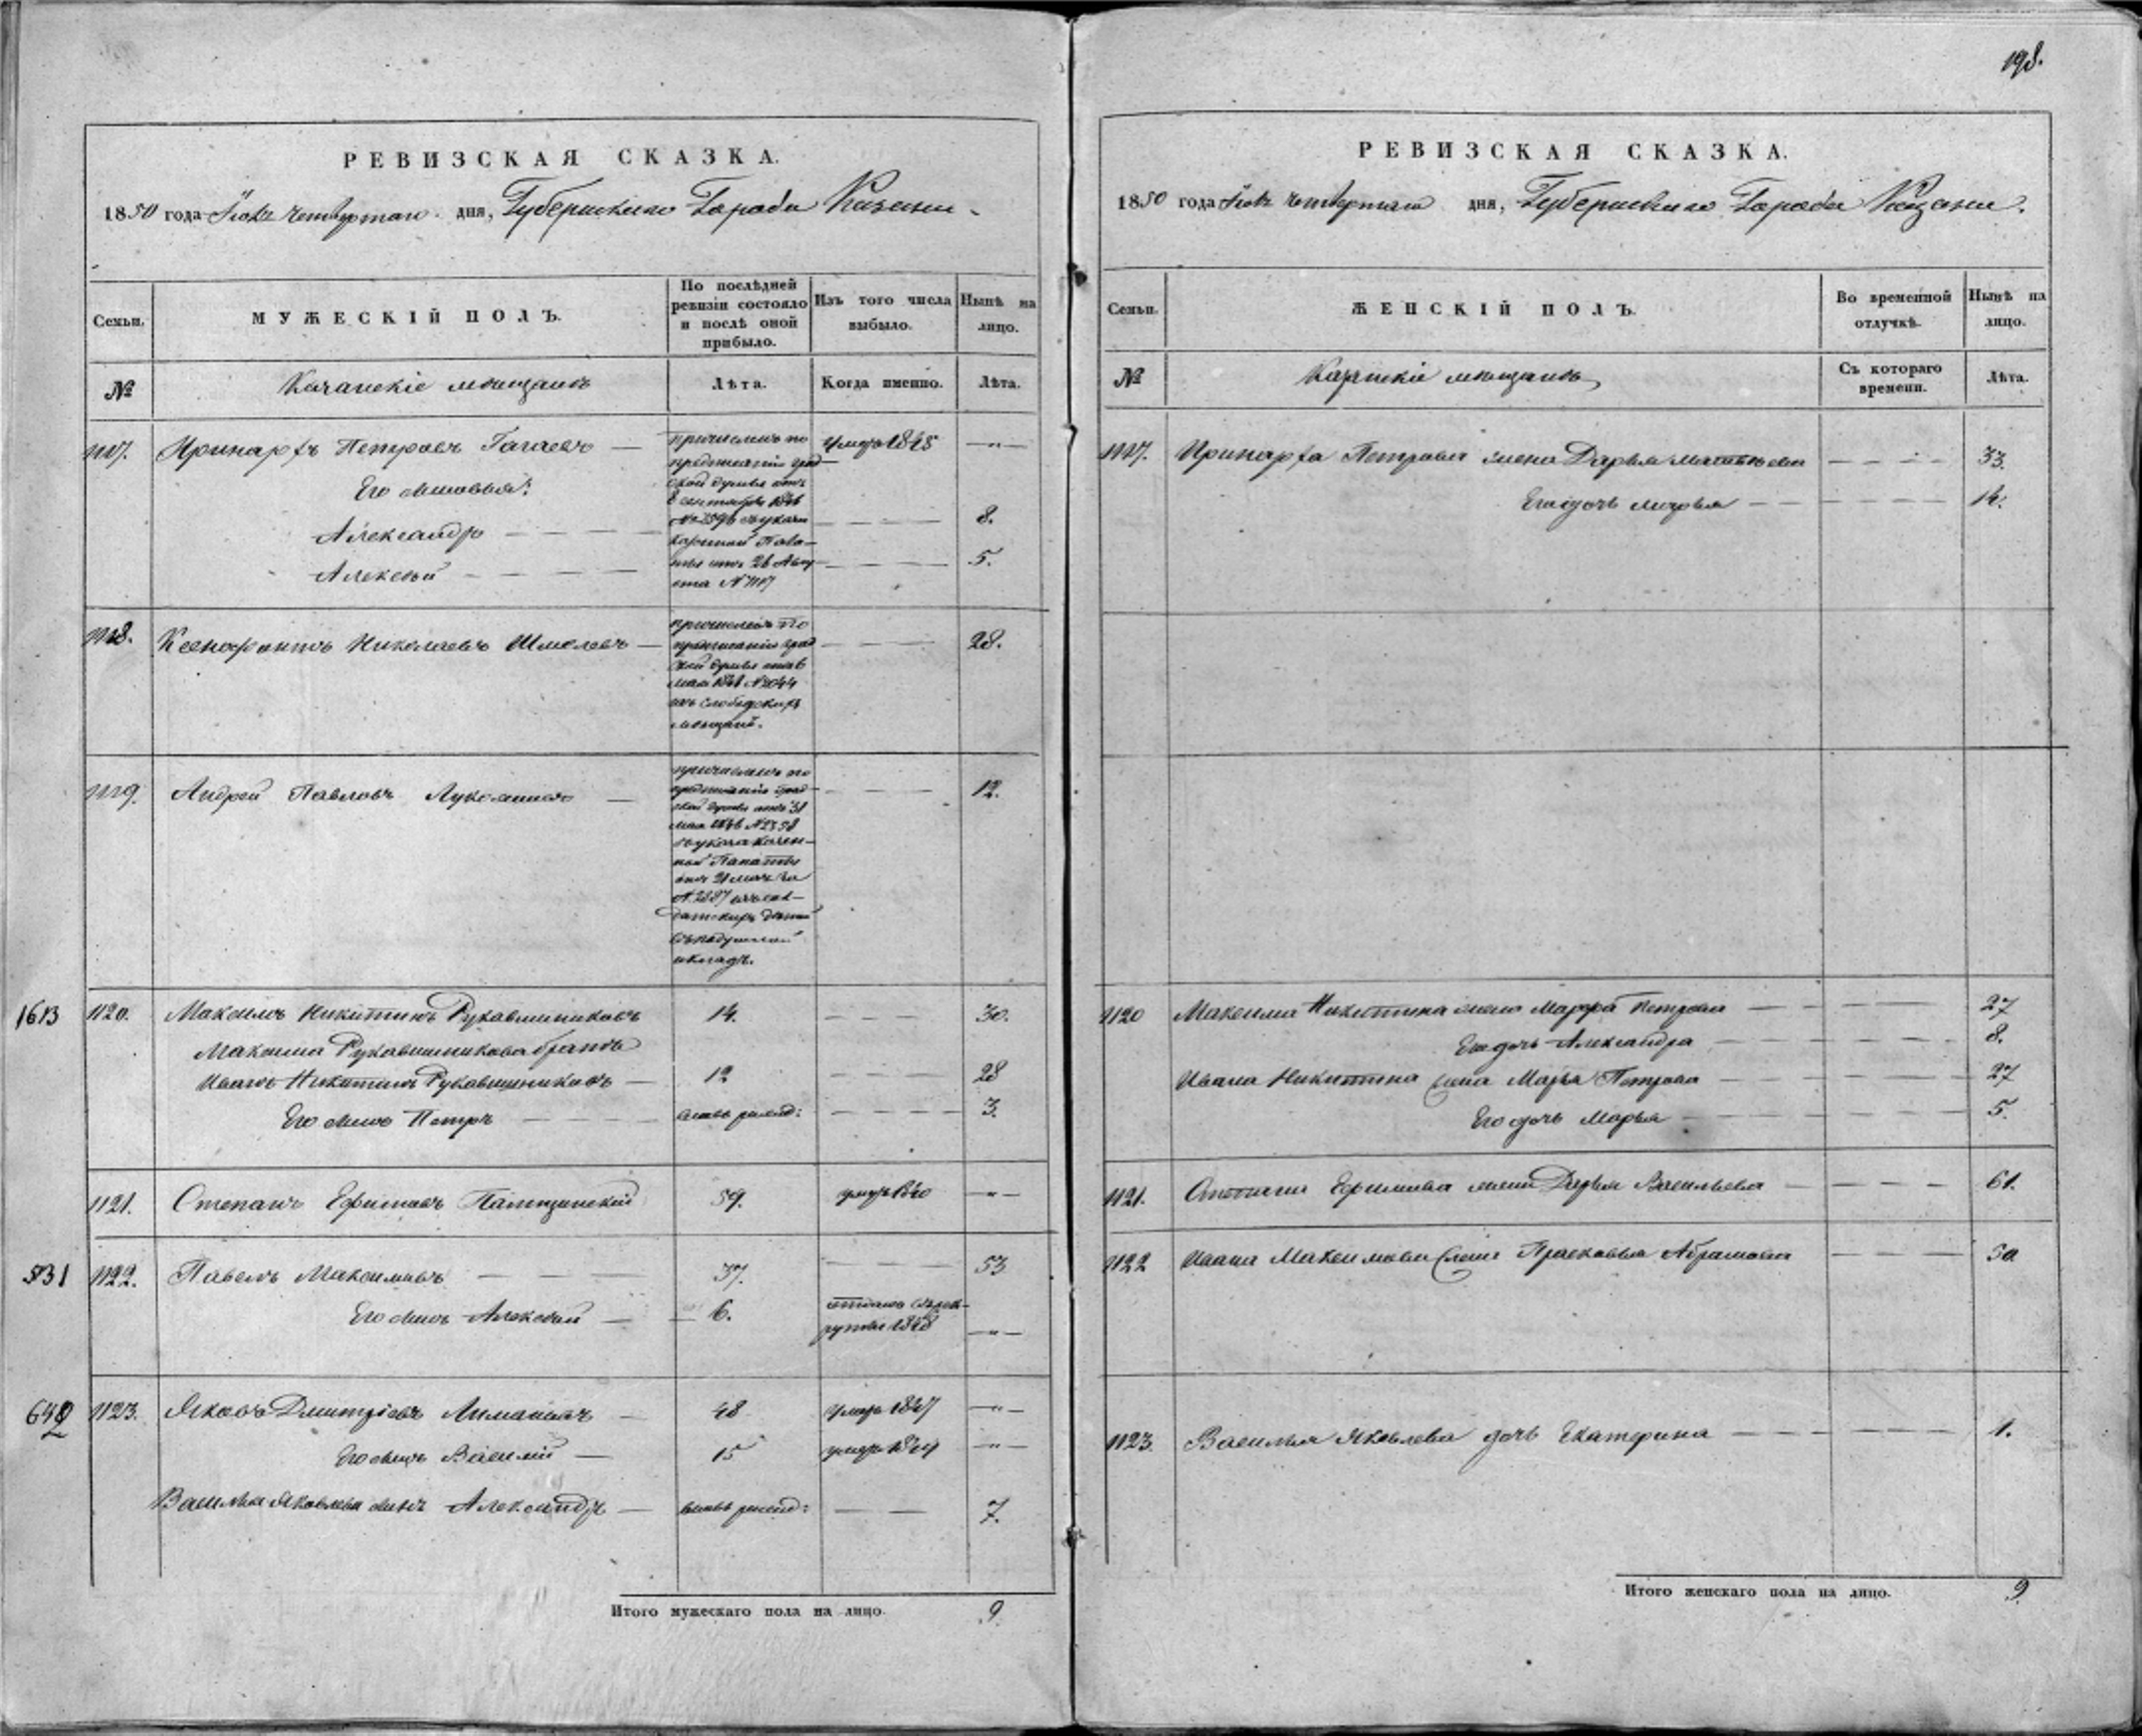 198.
РЕВИЗСКАЯ СКАЗКА.
1850 года дня, Губернскаго Города Казани
Семьи.
МУЖЕСКІЙ ПОЛЪ.
По послѣдней
ревизіи состояло
и послѣ оной
прибыло.
Изъ того числа
выбыло.
Нынѣ на
лицо.
№
Казанскіе мещане
Лѣта.
Когда именно.
Лѣта.
1117. Иринархъ Петровъ — причисленъ по умеръ 1845 — " —
предписанію град
Его сыновья: ской думы отъ
8 сентября 1846
Александръ 8.
Алексѣй 5.
1118. Ксенофонтъ Николаевъ Шмелевъ — причисленъ по 28.
предписанію град
ской думы
мая
слободскихъ
мещанъ.
1119. Андрей Павловъ — причисленъ по 12.
предписанію град
ской думы отъ 31
мая 1846
ной Палаты
датскихъ дѣтей
окладъ.
1613 1120. Максимъ Никитинъ Рукавишниковъ 14. 30.
Максима Рукавишникова братъ
Иванъ Никитинъ Рукавишниковъ — 12 28
Его сынъ Петръ 3.
1121. Степанъ Ефимовъ 59. умеръ — " —
531 1122. Павелъ Максимовъ 37. 53
Его сынъ Алексѣй — 6. отданъ въ рек-
руты 1848 — " —
642 1123. Яковъ Дмитріевъ — 48 умеръ 1847 — " —
Его сынъ Василій — 15 умеръ — " —
Василья Яковлева сынъ Александръ — 7.
Итого мужескаго пола на лицо. 9.
РЕВИЗСКАЯ СКАЗКА.
1850 года дня, Губернскаго Города Казани.
Семьи.
ЖЕНСКІЙ ПОЛЪ.
Во временной
отлучкѣ.
Нынѣ на
лицо.
№
Казанскіе мещане
Съ котораго
времени.
Лѣта.
1117. Иринарха Петрова жена Дарья Матвѣева 33.
Его дочь Марья 14.
1120 Максима Никитина жена Марфа Петрова 27
Его дочь Александра 8.
Ивана Никитина жена Марья Петрова 27
Его дочь Марья 5.
1121. Степана Ефимова жена Дарья Васильева 61.
1122 Ивана Максимова жена Прасковья Абрамова 50
1123. Василья Яковлева дочь Екатерина 1.
Итого женскаго пола на лицо. 9